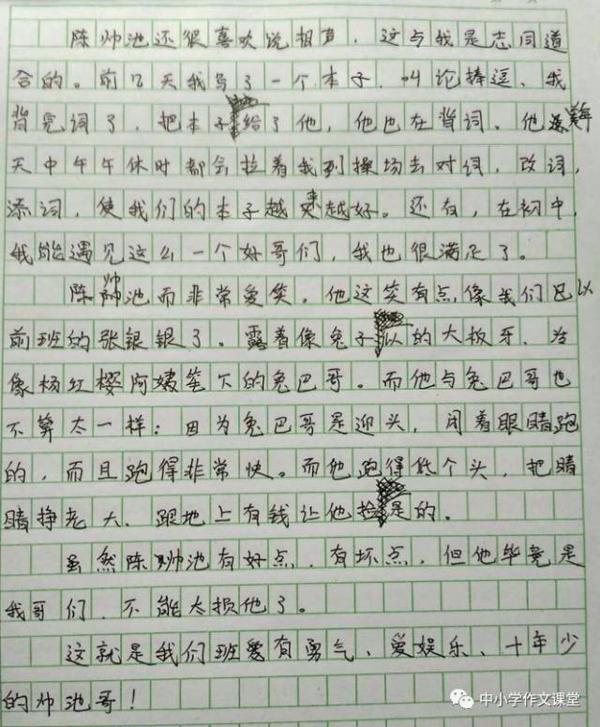 陈帅池还很喜欢说相声，这与我是志同道
合的。前几天我写了一个本子，叫论捧逗、我
背完词了，把本子给了他，他也在背词、他每
天中午午休时都会拉着我到操场去对词，改词，
添词，使我们的本子越来越好。还有，在初中，
我能遇见这么一个好哥们，我也很满足了。
陈帅池而非常爱笑。他这笑有点像我们民以
前班的张银银了。露着像兔子似的大板牙，为
像杨红樱阿姨笔下的兔巴哥。而他与兔巴哥也
不算太一样；因为兔巴哥是迎头，闭着眼睛跑
的，而且跑得非常快。而他跑得低个头，把睛
睛挣老大、跟地上有钱让他捡是的．
虽然陈帅池有好点，有坏点，但他毕竟是
我哥们，不能太损他了。
这就是我们班爱有勇气、爱娱乐、十年少
的帅池哥！
中小学作文课堂